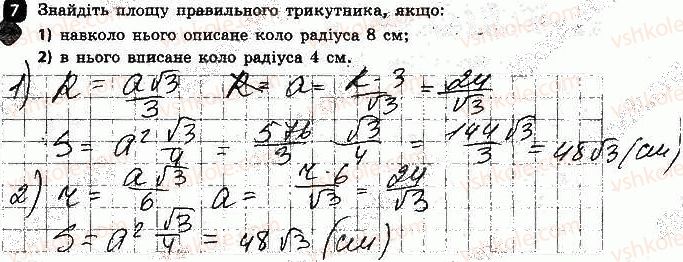 7 Знайдіть площу правильного трикутника, якщо:
1) навколо нього описане коло радіуса 8 см;
2) в нього вписане коло радіуса 4 см.
1) R = a√3/3 R = a = R·3/√3 = 24/√3
S = a² √3/4 = 576/3 √3/4 = 144√3/3 = 48√3 (см)
2) r = a√3/6 a = r·6/√3 = 24/√3
S = a² √3/4 = 48√3 (см)
vshkole.com